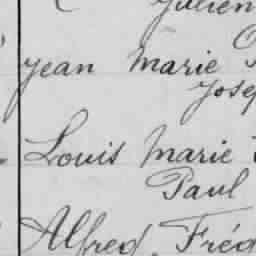 Julien
Jean Marie
Jose
Louis Marie
Paul
Alfred, Fréd